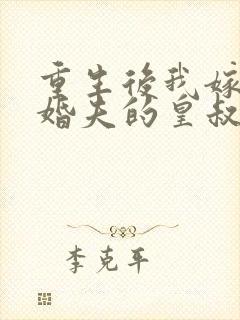 重生後我嫁
婚夫的皇叔
李克平